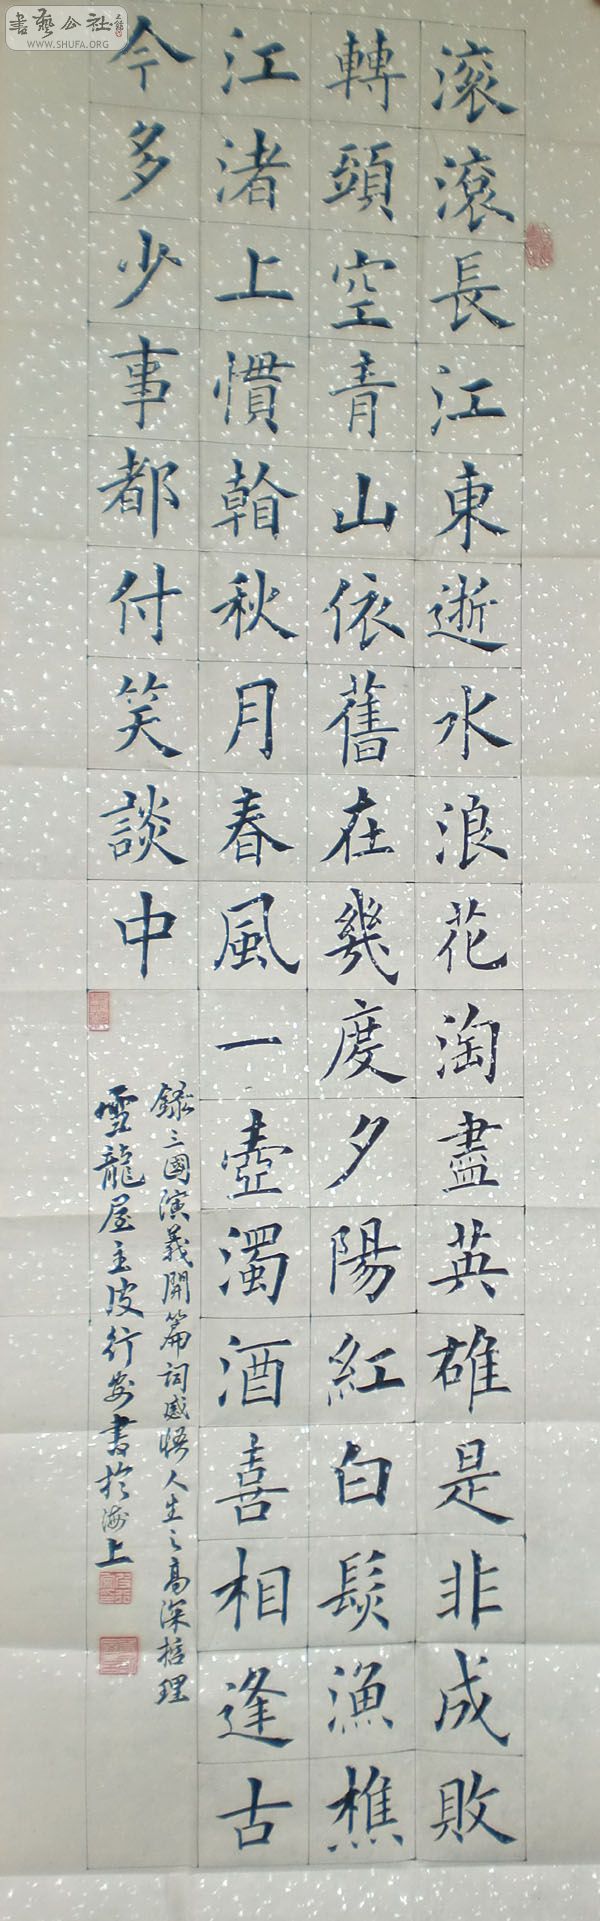 滚滾長江東逝水浪花淘盡英雄是非成敗
轉頭空青山依舊在幾度夕陽紅白髮漁樵
江渚上慣看秋月春風一壺濁酒喜相逢古
今多少事都付笑談中
錄三國演義開篇詞感悟人生之高深哲理
雪龍屋主皮行安書於海上
書藝公社
WWW.SHUFA.ORG